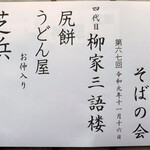 そばの会
第六七回 令和元年十一月十六日
四代目
柳家三語楼
尻餅
うどん屋
お仲入り
芝浜